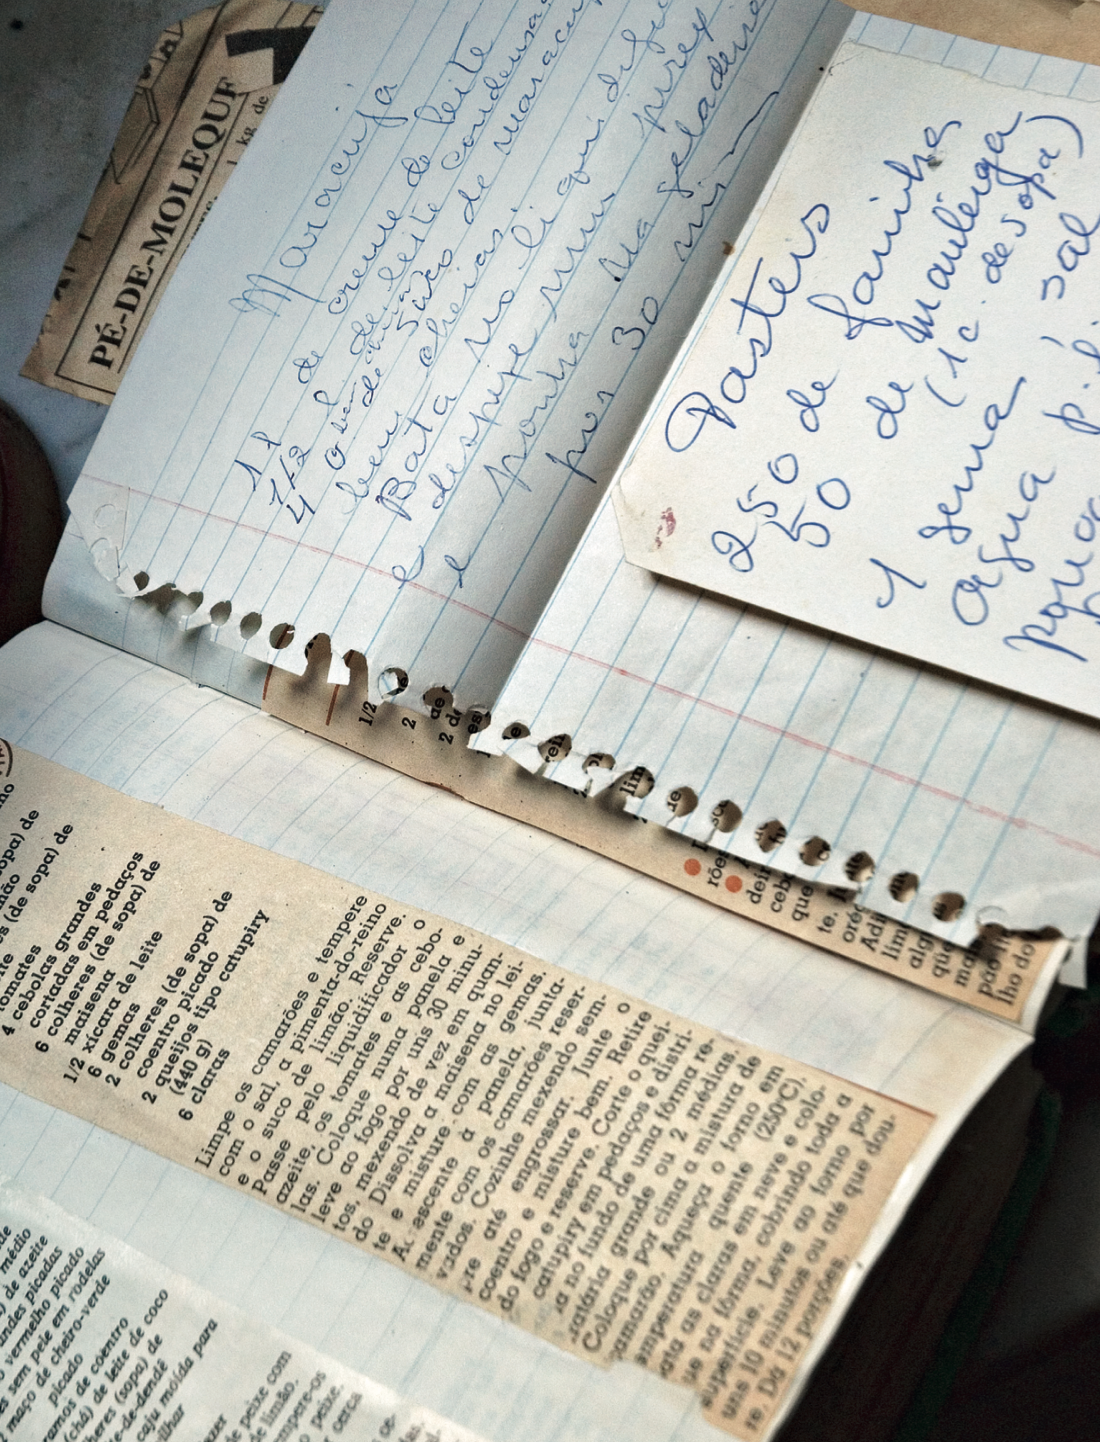 PÉ-DE-MOLEQUE
1 kg. de
Maracujá
1 l de creme de leite
1/2 l. de leite condensa
4
de suco de maracu
bem cheias
Bata no liqui
e despeje num pirex
e ponha na geladeira
por 30 min
Pasteis
250 de farinha
50 de manteiga
(1 c. de sopa)
1 gema, sal
agua p.
1/2
2
2 d
lim
rõe
dei
ceb
que
te.
oré
Adi
lim
alg
que
pão
lho do
sopa) de
(de sopa) de
tomates
4 cebolas grandes
cortadas em pedaços
6 colheres (de sopa) de
maisena
1/2 xícara de leite
6 gemas
2 colheres (de sopa) de
coentro picado
2 queijos tipo catupiry
(440 g)
6 claras
Limpe os camarões e tempere
com o sal, a pimenta-do-reino
e o suco de limão. Reserve.
Passe pelo liquidificador o
azeite, os tomates e as cebo-
las. Coloque numa panela e
leve ao fogo por uns 30 minu-
tos, mexendo de vez em quan-
do. Dissolva a maisena no lei-
te e misture com as gemas.
Acrescente à panela, junta-
mente com os camarões reser-
vados. Cozinhe mexendo sem-
pre até engrossar. Junte o
coentro e misture bem. Retire
do fogo e reserve. Corte o quei-
catupiry em pedaços e distri-
a no fundo de uma fôrma re-
ratária grande ou 2 médias.
Coloque por cima a mistura de
camarão. Aqueça o forno em
temperatura quente (250°C).
ata as claras em neve e colo-
ue na fôrma, cobrindo toda a
superfície. Leve ao forno por
uns 10 minutos ou até que dou-
re. Dá 12 porções.
médio
) de azeite
andes picadas
vermelho picado
s sem pele em rodelas
maço de cheiro-verde
picado
ramos de coentro
(chá) de leite de coco
heres (sopa) de
te-de-dendê
caju moída para
ilhar
de peixe com
de limão.
mpere-os
peixe.
cerca